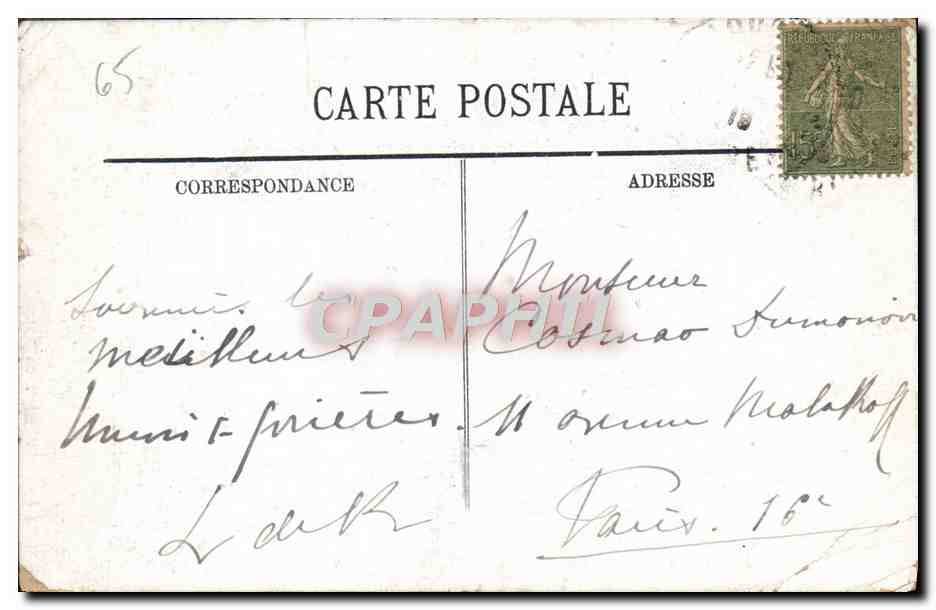 65
CARTE POSTALE
REPUBLIQUE FRANÇAISE
15
18
CORRESPONDANCE
ADRESSE
CPAPHIL
Souvenirs les
meilleurs
prières.
L de R
Monsieur
Cosmao Dumanoir
11 avenue Malakoff
Paris. 16e